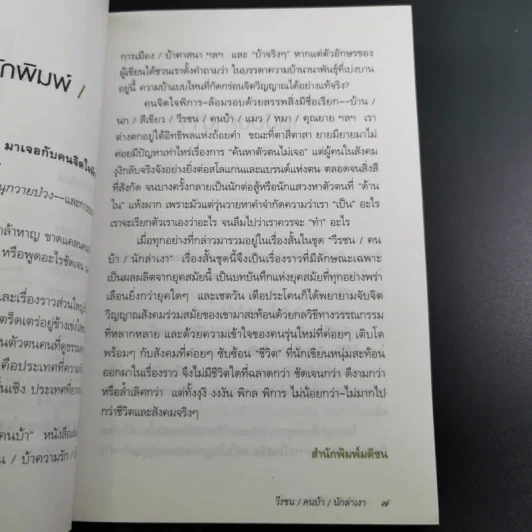 ักพิมพ์ /
มาเจอกับคนจิตใจพิ
นุกวายป่วง—และการ
กล้าหาญ ขาดแคลน
หรือพูดอะไรชัดเจน
และเรื่องราวส่วนใหญ่
ตร็ดเตร่อยู่ข้างเข่ง
นตัวตนคนที่ดูธรรม
คือประเทศที่ความ
ั้นเชิง ประเทศที่ยา
คนบ้า" หนังสือเล่
น / บ้าความรัก /
การเมือง / บ้าศาสนา ฯลฯ และ "บ้าจริงๆ" หากแต่ตัวอักษรของ
ผู้เขียนได้ชวนเราตั้งคำถามว่า ในบรรดาความบ้านานาพันธุ์ที่เบ่งบาน
อยู่นี้ ความบ้าแบบไหนที่กัดกร่อนจิตวิญญาณได้อย่างแท้จริง?
คนจิตใจพิการ–ล้อมรอบด้วยสรรพสิ่งมีชื่อเรียก--บ้าน /
นก / สีเขียว / วีรชน / คนบ้า / แมว / หมา / คุณยาย ฯลฯ เรา
ต่างตกอยู่ใต้อิทธิพลแห่งถ้อยคำ ขณะที่ตาสีตาสา ยายมียายมาไม่
ค่อยมีปัญหาเท่าไหร่เรื่องการ "ค้นหาตัวตนไม่เจอ" แต่ผู้คนในสังคม
งุงิกลับจริงจังอย่างยิ่งต่อสโลแกนและแบรนด์แห่งตน ตลอดจนสิ่งสี
ที่สังกัด จนบางครั้งกลายเป็นนักต่อสู้หรือนักแสวงหาตัวตนที่ "ด้าน
ใน" แห้งผาก เพราะมัวแต่วุ่นวายหาคำจำกัดความว่าเรา "เป็น" อะไร
เราจะเรียกตัวเราเองว่าอะไร จนลืมไปว่าเราควรจะ "ทำ" อะไร
เมื่อทุกอย่างที่กล่าวมารวมอยู่ในเรื่องสั้นในชุด "วีรชน / คน
บ้า / นักล่าเงา" เรื่องสั้นชุดนี้จึงเป็นเรื่องราวที่มีลักษณะเฉพาะ
เป็นผลผลิตจากยุคสมัยนี้ เป็นบทบันทึกแห่งยุคสมัยที่ทุกอย่างพร่า
เลือนยิ่งกว่ายุคใดๆ และเชตวัน เตือประโคนก็ได้พยายามจับจิต
วิญญาณสังคมร่วมสมัยของเขามาสะท้อนด้วยกลวิธีทางวรรณกรรม
ที่หลากหลาย และด้วยความเข้าใจของคนรุ่นใหม่ที่ค่อยๆ เติบโต
พร้อมๆ กับสังคมที่ค่อยๆ ซับซ้อน "ชีวิต" ที่นักเขียนหนุ่มสะท้อน
ออกมาในเรื่องราว จึงไม่มีชีวิตใดที่ฉลาดกว่า ชัดเจนกว่า ดีงามกว่า
หรือล้ำเลิศกว่า แต่ทั้งงุงิ งงงัน พิกล พิการ ไม่น้อยกว่า–ไม่มากไป
กว่าชีวิตและสังคมจริงๆ
สำนักพิมพ์มติชน
วีรชน / คนบ้า / นักล่าเงา ๗